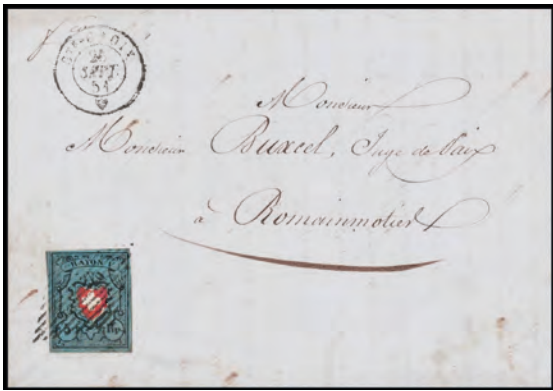 STE CROIX
SEPT.
51
Monsieur
Monsieur Buxcel, Juge de Paix
à Romainmotier
RAYON
5 Rp.